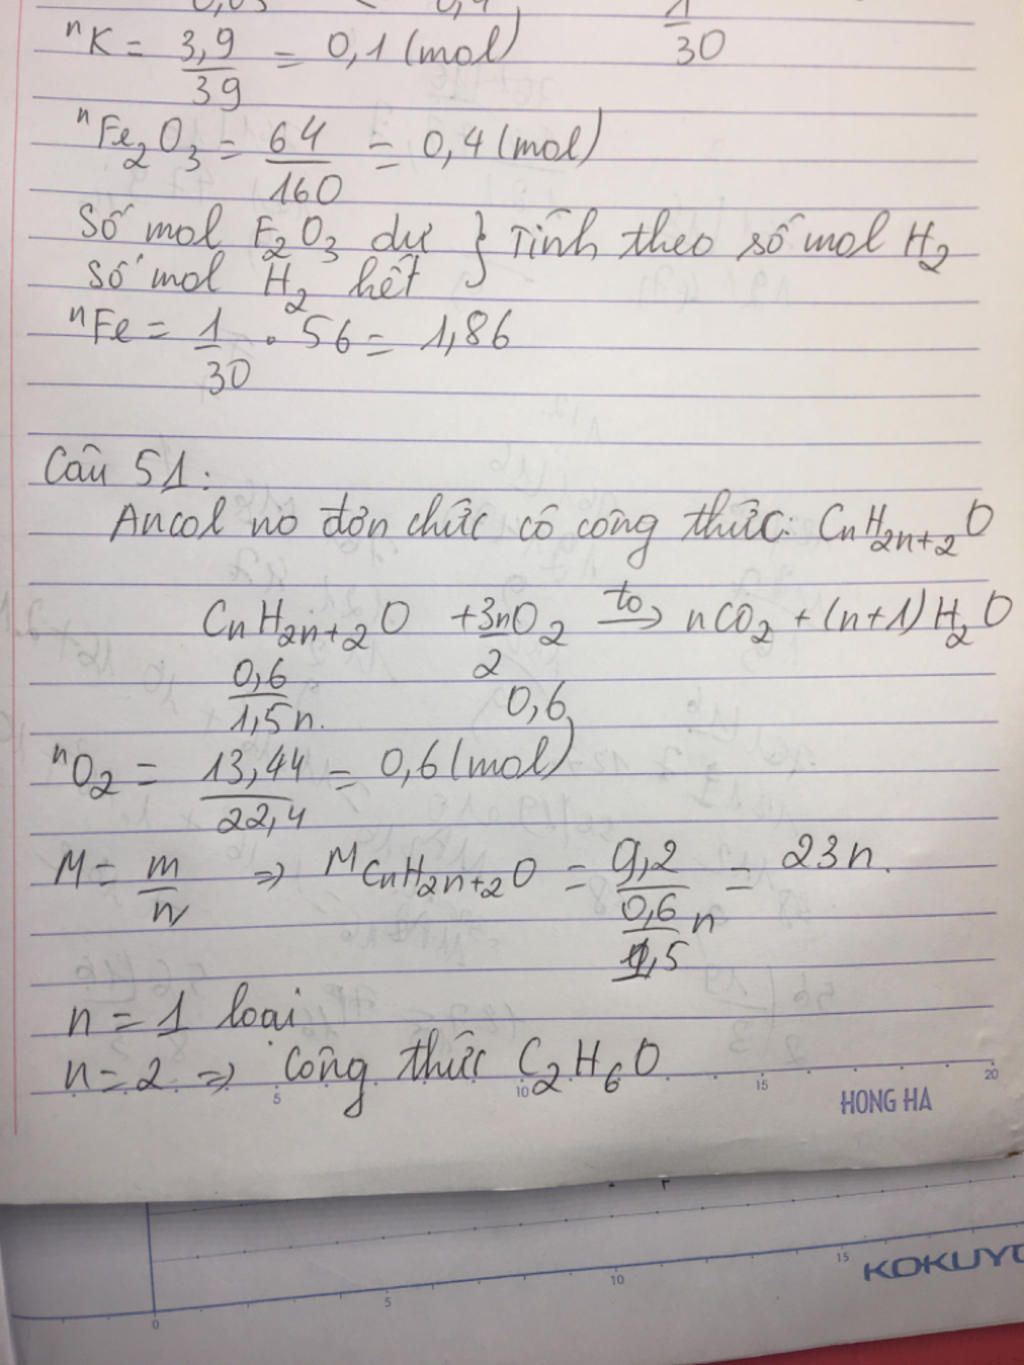 nK = 3,9/39 = 0,1 (mol) 1/30
nFe2O3 = 64/160 = 0,4 (mol)
Số mol F2O3 dư } Tính theo số mol H2
Số mol H2 hết
nFe = 1/30 . 56 = 1,86
Câu 51:
Ancol no đơn chức có công thức: CnH2n+2O
CnH2n+2O + 3n/2 O2 to→ nCO2 + (n+1)H2O
0,6/1,5n. 0,6
nO2 = 13,44/22,4 = 0,6 (mol)
M = m/n ⇒ MCnH2n+2O = 9,2/(0,6/1,5 n) = 23n.
n = 1 loại
n = 2 ⇒ Công thức C2H6O
5 10 15 20
HONG HA
0 5 10 15
KOKUYO